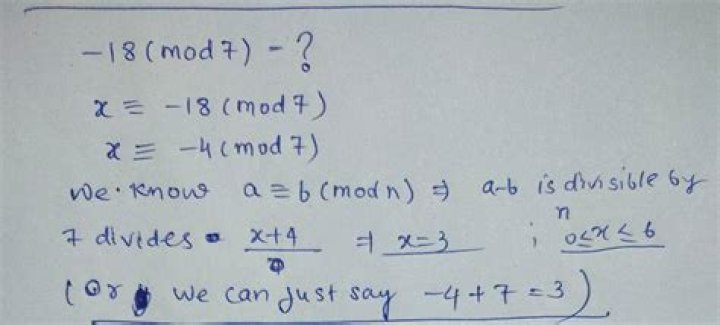 -18 (mod 7) - ?
x ≡ -18 (mod 7)
x ≡ -4 (mod 7)
We. Know a ≡ b (mod n) ⇒ a-b is divisible by n
7 divides x+4 ⇒ x=3 ; 0≤x≤6
(Or we can just say -4+7=3)